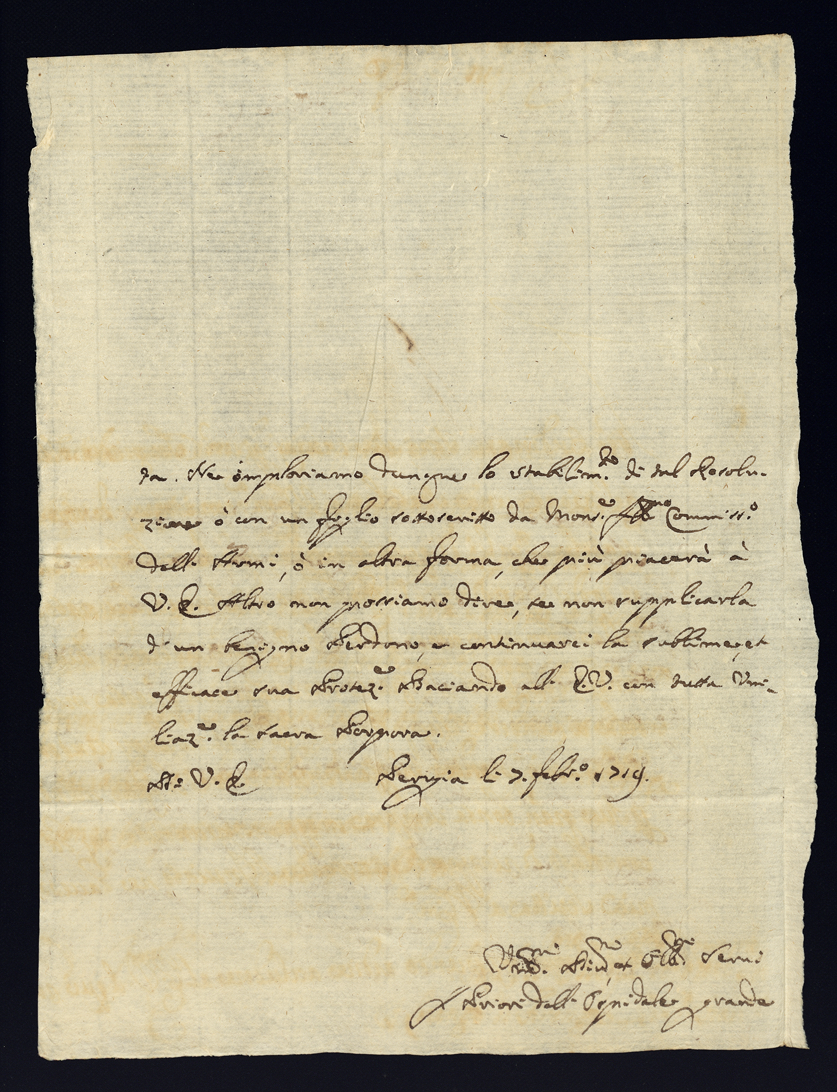 ta. Ne imploriamo dunque lo stabilim.to di tal Resolu-
zione ò con un foglio sottoscritto da Mons.e Ill.mo Commiss.o
dell'Armi, ò in altra forma, che più piacerà à
V.E. Altro non possiamo dire, se non supplicarla
d'un benigno Perdono, e continuarci la sublime, et
efficace sua Protez.e Baciando all'E.V. con tutta Vmi-
liaz.e la Sacra Porpora.
Di V.E. Perugia li 7. febr.o 1719.
Vmil.mi Div.mi et Obb.mi Servi
Priori dell'Ospidale grande